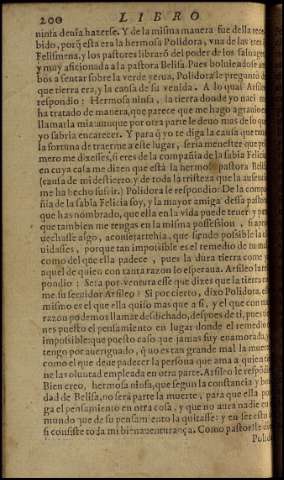 200 LIBRO
ninfa deuia hazerse. Y de la misma manera fue della rece
bido, porq̃ esta era la hermosa Polidora, vna de las tres
Felismena, y los pastores libraron del poder de los saluages
y muy aficionada a la pastora Belisa. Pues boluiendose am
bos a sentar sobre la verde yerua, Polidora le preguntò de
que tierra era, y la causa de su venida. A lo qual Arsileo
respondio: Hermosa ninfa, la tierra donde yo naci me
ha tratado de manera, que parece que me hago agrauio en
llamarla mia, aunque por otra parte le deuo mas de lo que
yo sabria encarecer. Y para q̃ yo te diga la causa que tuuo
la fortuna de traerme a este lugar, seria menester que pri
mero me dixesses, si eres de la compañia de la sabia Felicia
en cuya casa me dizen que està la hermosa pastora Belisa
(causa de mi destierro, y de toda la tristeza que la ausencia
me ha hecho sufrir.) Polidora le respondio: De la compa
ñia de la sabia Felicia soy, y la mayor amiga dessa pastora
que has nombrado, que ella en la vida puede tener, y por
que tambien me tengas en la misma possession, si apro
uechasse algo, aconsejartehia, que siendo possible la ol
uidasses, porque tan impossible es el remedio de tu mal
como del que ella padece, pues la dura tierra come ya
aquel de quien con tanta razon lo esperaua. Arsileo le res
pondio: Sera por ventura esse que dizes que la tierra co
me su seruidor Arsileo? Si por cierto, dixo Polidora, esse
mismo es el que ella quiso mas que a si, y el que con mas
razon podemos llamar desdichado, despues de ti, pues tie
nes puesto el pensamiento en lugar donde el remedio es
impossible: que puesto caso que jamas fuy enamorada, yo
tengo por aueriguado, q̃ no es tan grande mal la muerte
como el que deue padecer la persona que ama a quien tie
ne la voluntad empleada en otra parte. Arsileo le respõdio
Bien creo, hermosa ninfa, que segun la constancia y bon
dad de Belisa, no serà parte la muerte, para que ella pon
ga el pensamiento en otra cosa, y que no aura nadie en el
mundo que de su pensamiento la quitasse: y en ser esto as
si consiste toda mi bienauenturança. Como pastor (le dixo
Polido